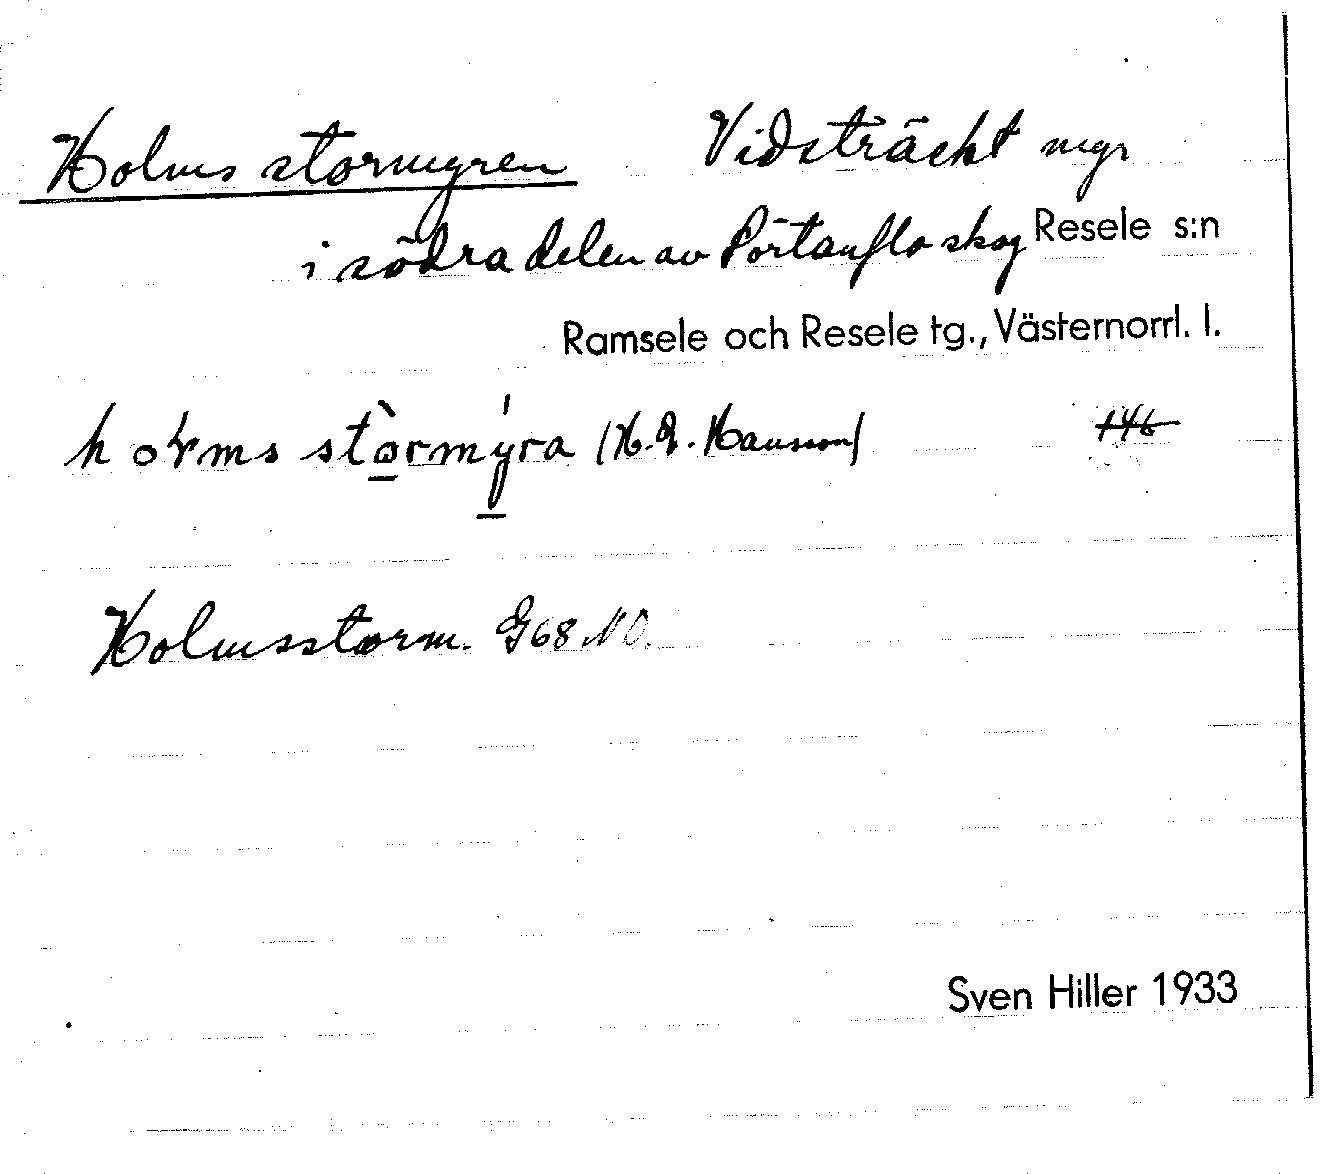 Holms stormyren Vidsträckt myr
i södra delen av Pörtanflo skog Resele s:n
Ramsele och Resele tg., Västernorrl. l.
stòrmýra (H. Hansson) 146
Holmsstorm. G68 NO.
Sven Hiller 1933